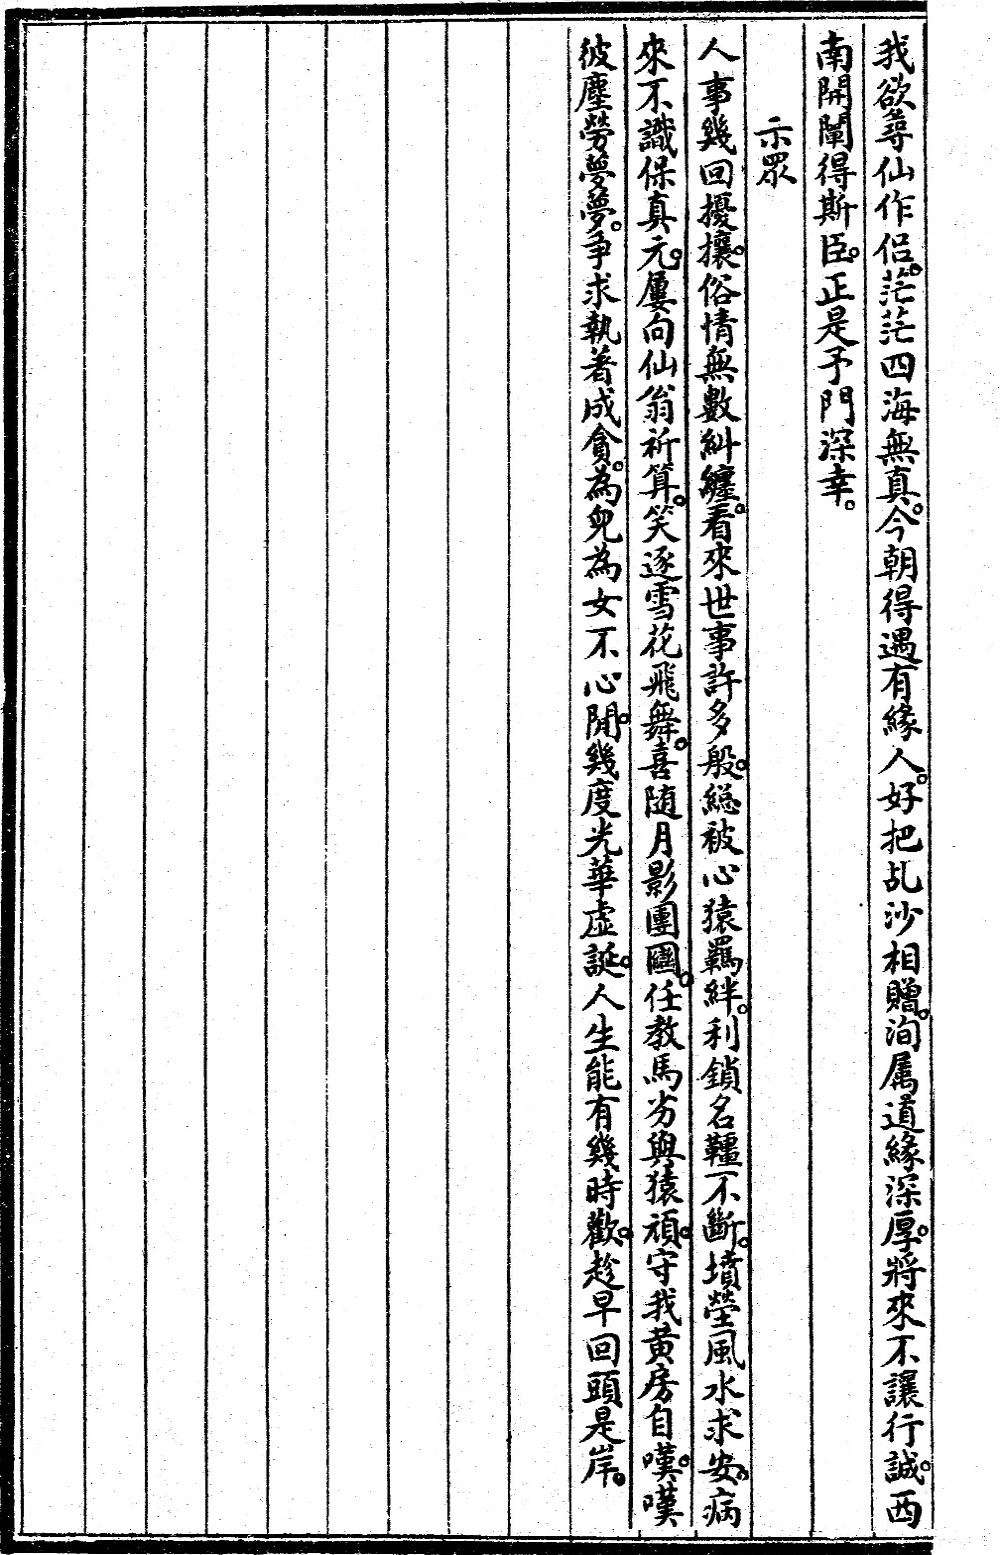 我欲尋仙作侶。茫茫四海無真。今朝得遇有緣人。好把乩沙相贈。洵属道緣深厚。將來不讓行誠。西
南開闡得斯臣。正是予門深幸。
示眾
人事幾回擾攘。俗情無數糾纏。看來世事許多般。總被心猿羈絆。利鎖名韁不斷。墳塋風水求安。病
來不識保真元。屢向仙翁祈算。笑逐雪花飛舞。喜随月影團圞。任教馬劣與猿頑。守我黃房自嘆。嘆
彼塵勞夢夢。爭求執著成貪。為兒為女不心閒。幾度光華虛誕。人生能有幾時歡。趁早回頭是岸。